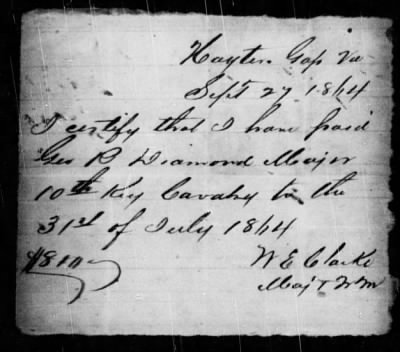 Hayters Gap Va
Sept 27 1864
I certify that I have paid
Geo R Diamond Major
10th Ky Cavalry to the
31st of July 1864
$810
W E Clarke
Maj & QM